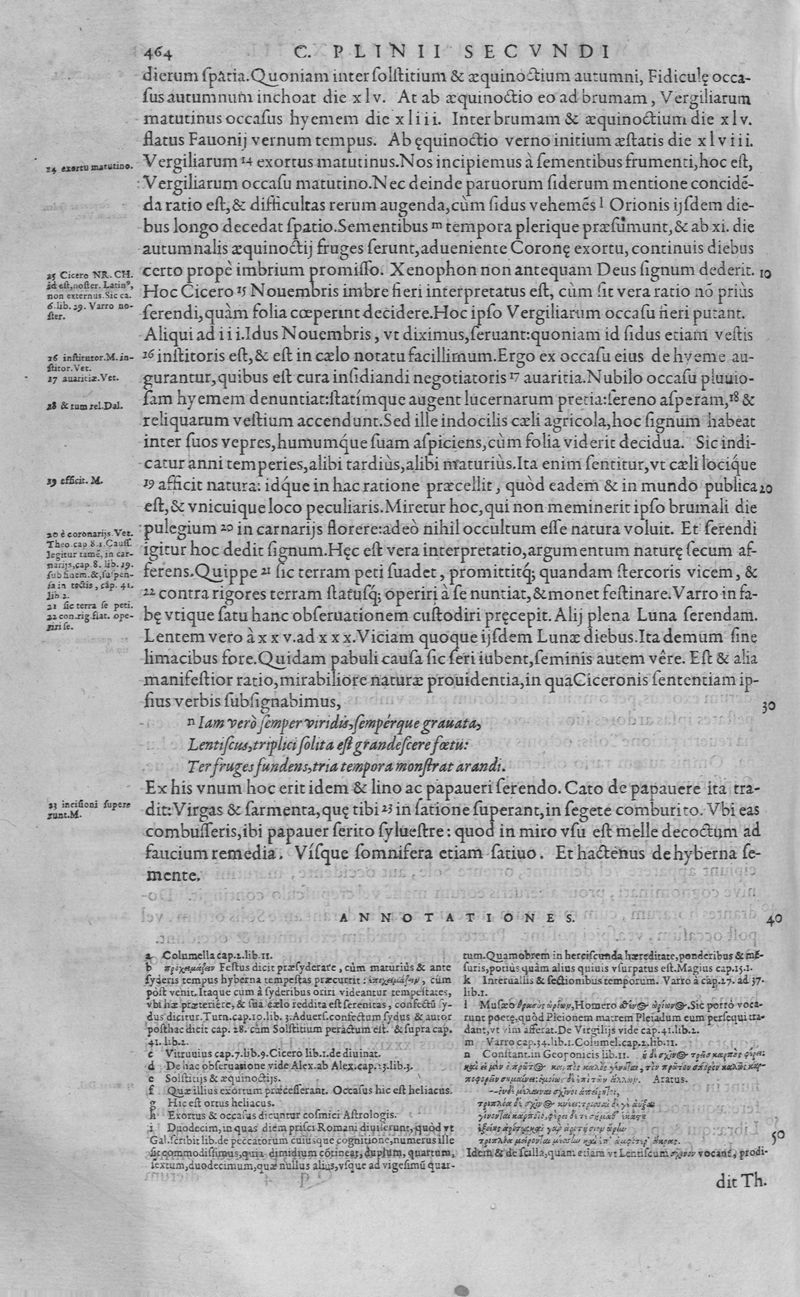 464 C. PLINII SECVNDI
dierum ſpatia.Quoniam inter ſolſtitium & æquinoctium autumni, Fidiculę occa-
ſus autumnum inchoat die xlv. At ab æquinoctio eo ad brumam, Vergiliarum
matutinus occaſus hyemem die xliii. Inter brumam & æquinoctium die xlv.
flatus Fauonij vernum tempus. Ab ęquinoctio verno initium æſtatis die xlviii.
24 exortu matutino.
Vergiliarum 14 exortus matutinus.Nos incipiemus à ſementibus frumenti,hoc eſt,
Vergiliarum occaſu matutino.Nec deinde paruorum ſiderum mentione concidē-
da ratio eſt,& difficultas rerum augenda,cùm ſidus vehemēs l Orionis ijſdem die-
bus longo decedat ſpatio.Sementibus m tempora plerique præſumunt,& ab xi. die
autumnalis æquinoctij fruges ſerunt,adueniente Coronę exortu, continuis diebus
certo propè imbrium promiſſo. Xenophon non antequam Deus ſignum dederit. 10
25 Cicero NR. CH.
id eſt,noſter. Latinꝰ,
non externus.Sic ca.
6.lib.29. Varro no-
ſter.
Hoc Cicero 15 Nouembris imbre fieri interpretatus eſt, cùm ſit vera ratio nō priùs
ſerendi,quàm folia cœperint decidere.Hoc ipſo Vergiliarum occaſu fieri putant.
Aliqui ad iii.Idus Nouembris, vt diximus,ſeruant:quoniam id ſidus etiam veſtis
26 inſtitutor.M.in-
ſtitor.Vet.
27 auaritiæ.Vet.
16 inſtitoris eſt,& eſt in cælo notatu facillimum.Ergo ex occaſu eius de hyeme au-
gurantur,quibus eſt cura inſidiandi negotiatoris 17 auaritia.Nubilo occaſu pluuio-
28 & tum rel.Dal.
ſam hyemem denuntiat:ſtatímque augent lucernarum pretia:ſereno aſperam,18 &
reliquarum veſtium accendunt.Sed ille indocilis cæli agricola,hoc ſignum habeat
inter ſuos vepres,humumque ſuam aſpiciens,cùm folia viderit decidua. Sic indi-
catur anni temperies,alibi tardiùs,alibi maturiùs.Ita enim ſentitur,vt cæli locíque
29 efficit. M.
19 afficit natura: idque in hac ratione præcellit, quòd eadem & in mundo publica 20
eſt,& vnicuique loco peculiaris.Miretur hoc,qui non meminerit ipſo brumali die
20 è coronarijs.Vet.
Theo.cap.8.1.Cauſſ.
legitur tamē, in car-
narijs,cap.8. lib.19.
ſub finem.&,ſuſpen-
ſa in tectis, cap. 41.
lib 2.
21 ſic terra ſe peti.
22 con.rig.fiat. ope-
riri ſe.
pulegium 20 in carnarijs florere:adeò nihil occultum eſſe natura voluit. Et ſerendi
igitur hoc dedit ſignum.Hęc eſt vera interpretatio,argumentum naturę ſecum af-
ferens.Quippe 21 ſic terram peti ſuadet, promittitq; quandam ſtercoris vicem, &
22 contra rigores terram ſtatuſq; operiri à ſe nuntiat,& monet feſtinare.Varro in fa-
bę vtique ſatu hanc obſeruationem cuſtodiri pręcepit.Alij plena Luna ſerendam.
Lentem vero à xxv.ad xxx.Viciam quoque ijſdem Lunæ diebus.Ita demum ſine
limacibus fore.Quidam pabuli cauſa ſic ſeri iubent,ſeminis autem vêre. Eſt & alia
manifeſtior ratio,mirabiliore naturæ prouidentia,in quaCiceronis ſententiam ip-
ſius verbis ſubſignabimus, 30
n Iam verò ſemper viridis,ſempérque grauata,
Lentiſcus,triplici ſolita eſt grandeſcere fœtu:
Ter fruges fundens,tria tempora monſtrat arandi.
Ex his vnum hoc erit idem & lino ac papaueri ſerendo. Cato de papauere ita tra-
23 inciſioni ſupere
runt.M.
dit:Virgas & ſarmenta,quę tibi 23 in ſatione ſuperant,in ſegete comburito. Vbi eas
combuſſeris,ibi papauer ſerito ſylueſtre: quod in miro vſu eſt melle decoctum ad
faucium remedia. Víſque ſomnifera etiam ſatiuo. Et hactenus de hyberna ſe-
mente.
ANNOTATIONES. 40
a Columella cap.2.lib.11.
b Feſtus dicit præſyderare, cùm maturiùs & ante
ſyderis tempus hyberna tempeſtas præcurrit: cùm
pòſt venit.Itaque cum à ſyderibus oriri videantur tempeſtates,
vbi hæ præteriere,& ſua cælo reddita eſt ſerenitas, confectū ſy-
dus dicitur.Turn.cap.10.lib.3.Aduerſ.confectum ſydus & autor
poſthac dicit cap. 28. cùm Solſtitium peractum eſt. & ſupra cap.
41.lib.2.
c Vitruuius cap.7.lib.9.Cicero lib.1.de diuinat.
d De hac obſeruatione vide Alex.ab Alex.cap.15.lib.3.
e Solſtitijs & æquinoctijs.
f Quæ illius exortum præceſſerant. Occaſus hic eſt heliacus.
g Hic eſt ortus heliacus.
h Exortus & occaſus dicuntur coſmici Aſtrologis.
i Duodecim,in quas diem priſci Romani diuiſerunt,quòd vt
Gal.ſcribit lib.de peccatorum cuiuſque cognitione,numerus ille
ſit commodiſſimus,quia dimidium cōtinear, duplum, quartum,
ſextum,duodecimum,quæ nullus alius,vſque ad vigeſimū quar-
tum.Quamobrem in herciſcunda hæreditate,ponderibus & mē-
ſuris,potiùs quàm alius quiuis vſurpatus eſt.Magius cap.15.1.
k Interuallis & ſectionibus temporum. Varro à cap.27. ad 37.
lib.1.
l Muſæo Homero Sic porrò voca-
runt poetę,quòd Pleionem matrem Pleiadum eum perſequi tra-
dant,vt vim afferat.De Virgilijs vide cap.41.lib.2.
m Varro cap.34.lib.1.Columel.cap.2.lib.11.
n Conſtant.in Geoponicis lib.11.
Aratus.
50
Idem & de ſcilla,quam etiam vt Lentiſcum vocant, prodi-
dit Th.